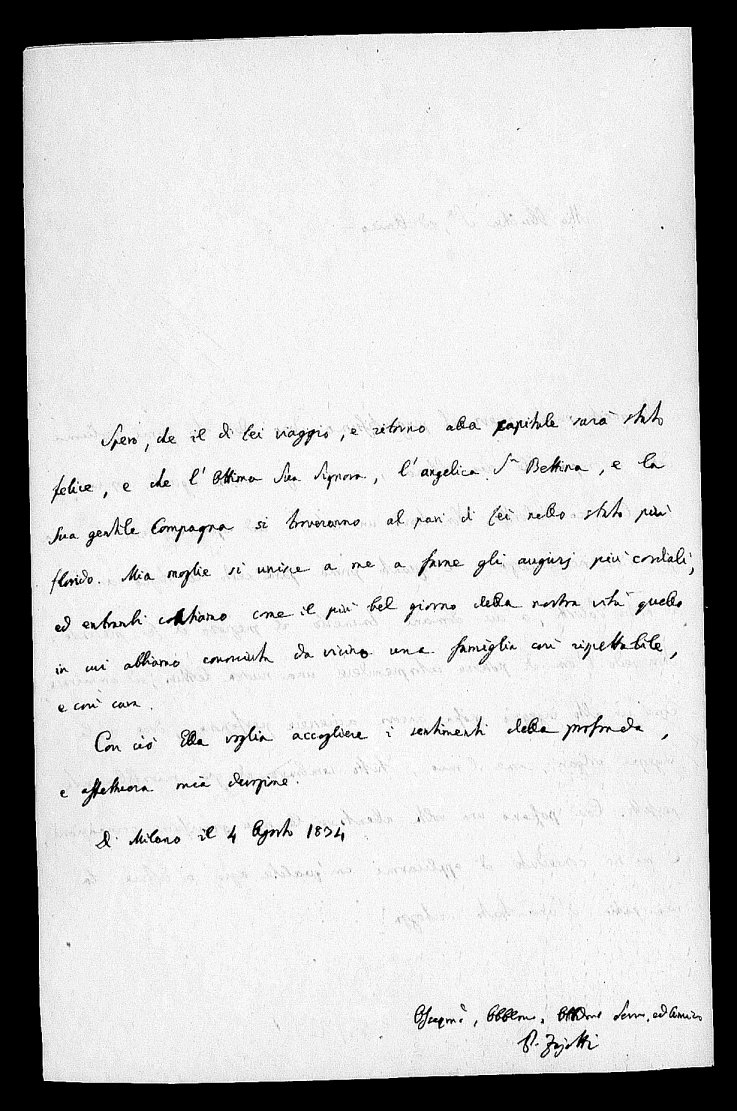 Spero, che il di Lei viaggio, e ritorno alla capitale sarà stato
felice, e che l'ottima Sua Signora, l'angelica Sra Bettina, e la
Sua gentile Compagna si troveranno al pari di Lei nello stato più
florido. Mia moglie si unisce a me a farne gli augurj più cordiali,
ed entrambi contiamo come il più bel giorno della nostra vita quello,
in cui abbiamo conosciuta da vicino una famiglia così rispettabile,
e così cara.
Con ciò Ella voglia accogliere i sentimenti della profonda,
e affettuosa mia devozione.
Di Milano il 4 Agosto 1834
Servo, ed Amico
P. Zajotti